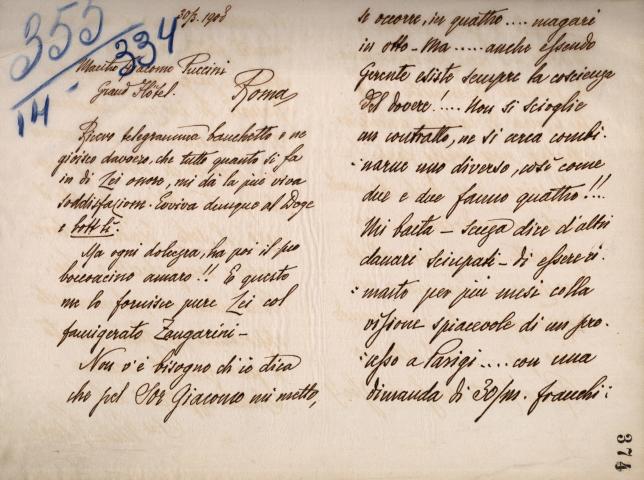 355
334
14
30/3. 1908
Maestro Giacomo Puccini
Grand Hôtel.
Roma
Ricevo telegramma banchetto e ne
gioisco davvero, che tutto quanto si fa
in di Lei onore, mi dà la più viva
soddisfazione. Evviva dunque al Doge
e
Ma ogni dolcezza, ha poi il suo
bocconcino amaro!! E questo
me lo fornisce pure Lei col
famigerato Zangarini -
Non v'è bisogno ch'io dica
che pel Sor Giacomo mi metto,
se occorre, in quattro .... magari
in otto - Ma ..... anche essendo
Gerente esiste sempre la coscienza
del dovere! .... Non si scioglie
un contratto, ne si cerca combi-
narne uno diverso, così come
due e due fanno quattro!!!
Mi basta - senza dire d'altri
danari sciupati - di essere ri-
masto per più mesi colla
visione spiacevole di un pro-
cesso a Parigi .... con una
dimanda di 30/m. franchi:
374